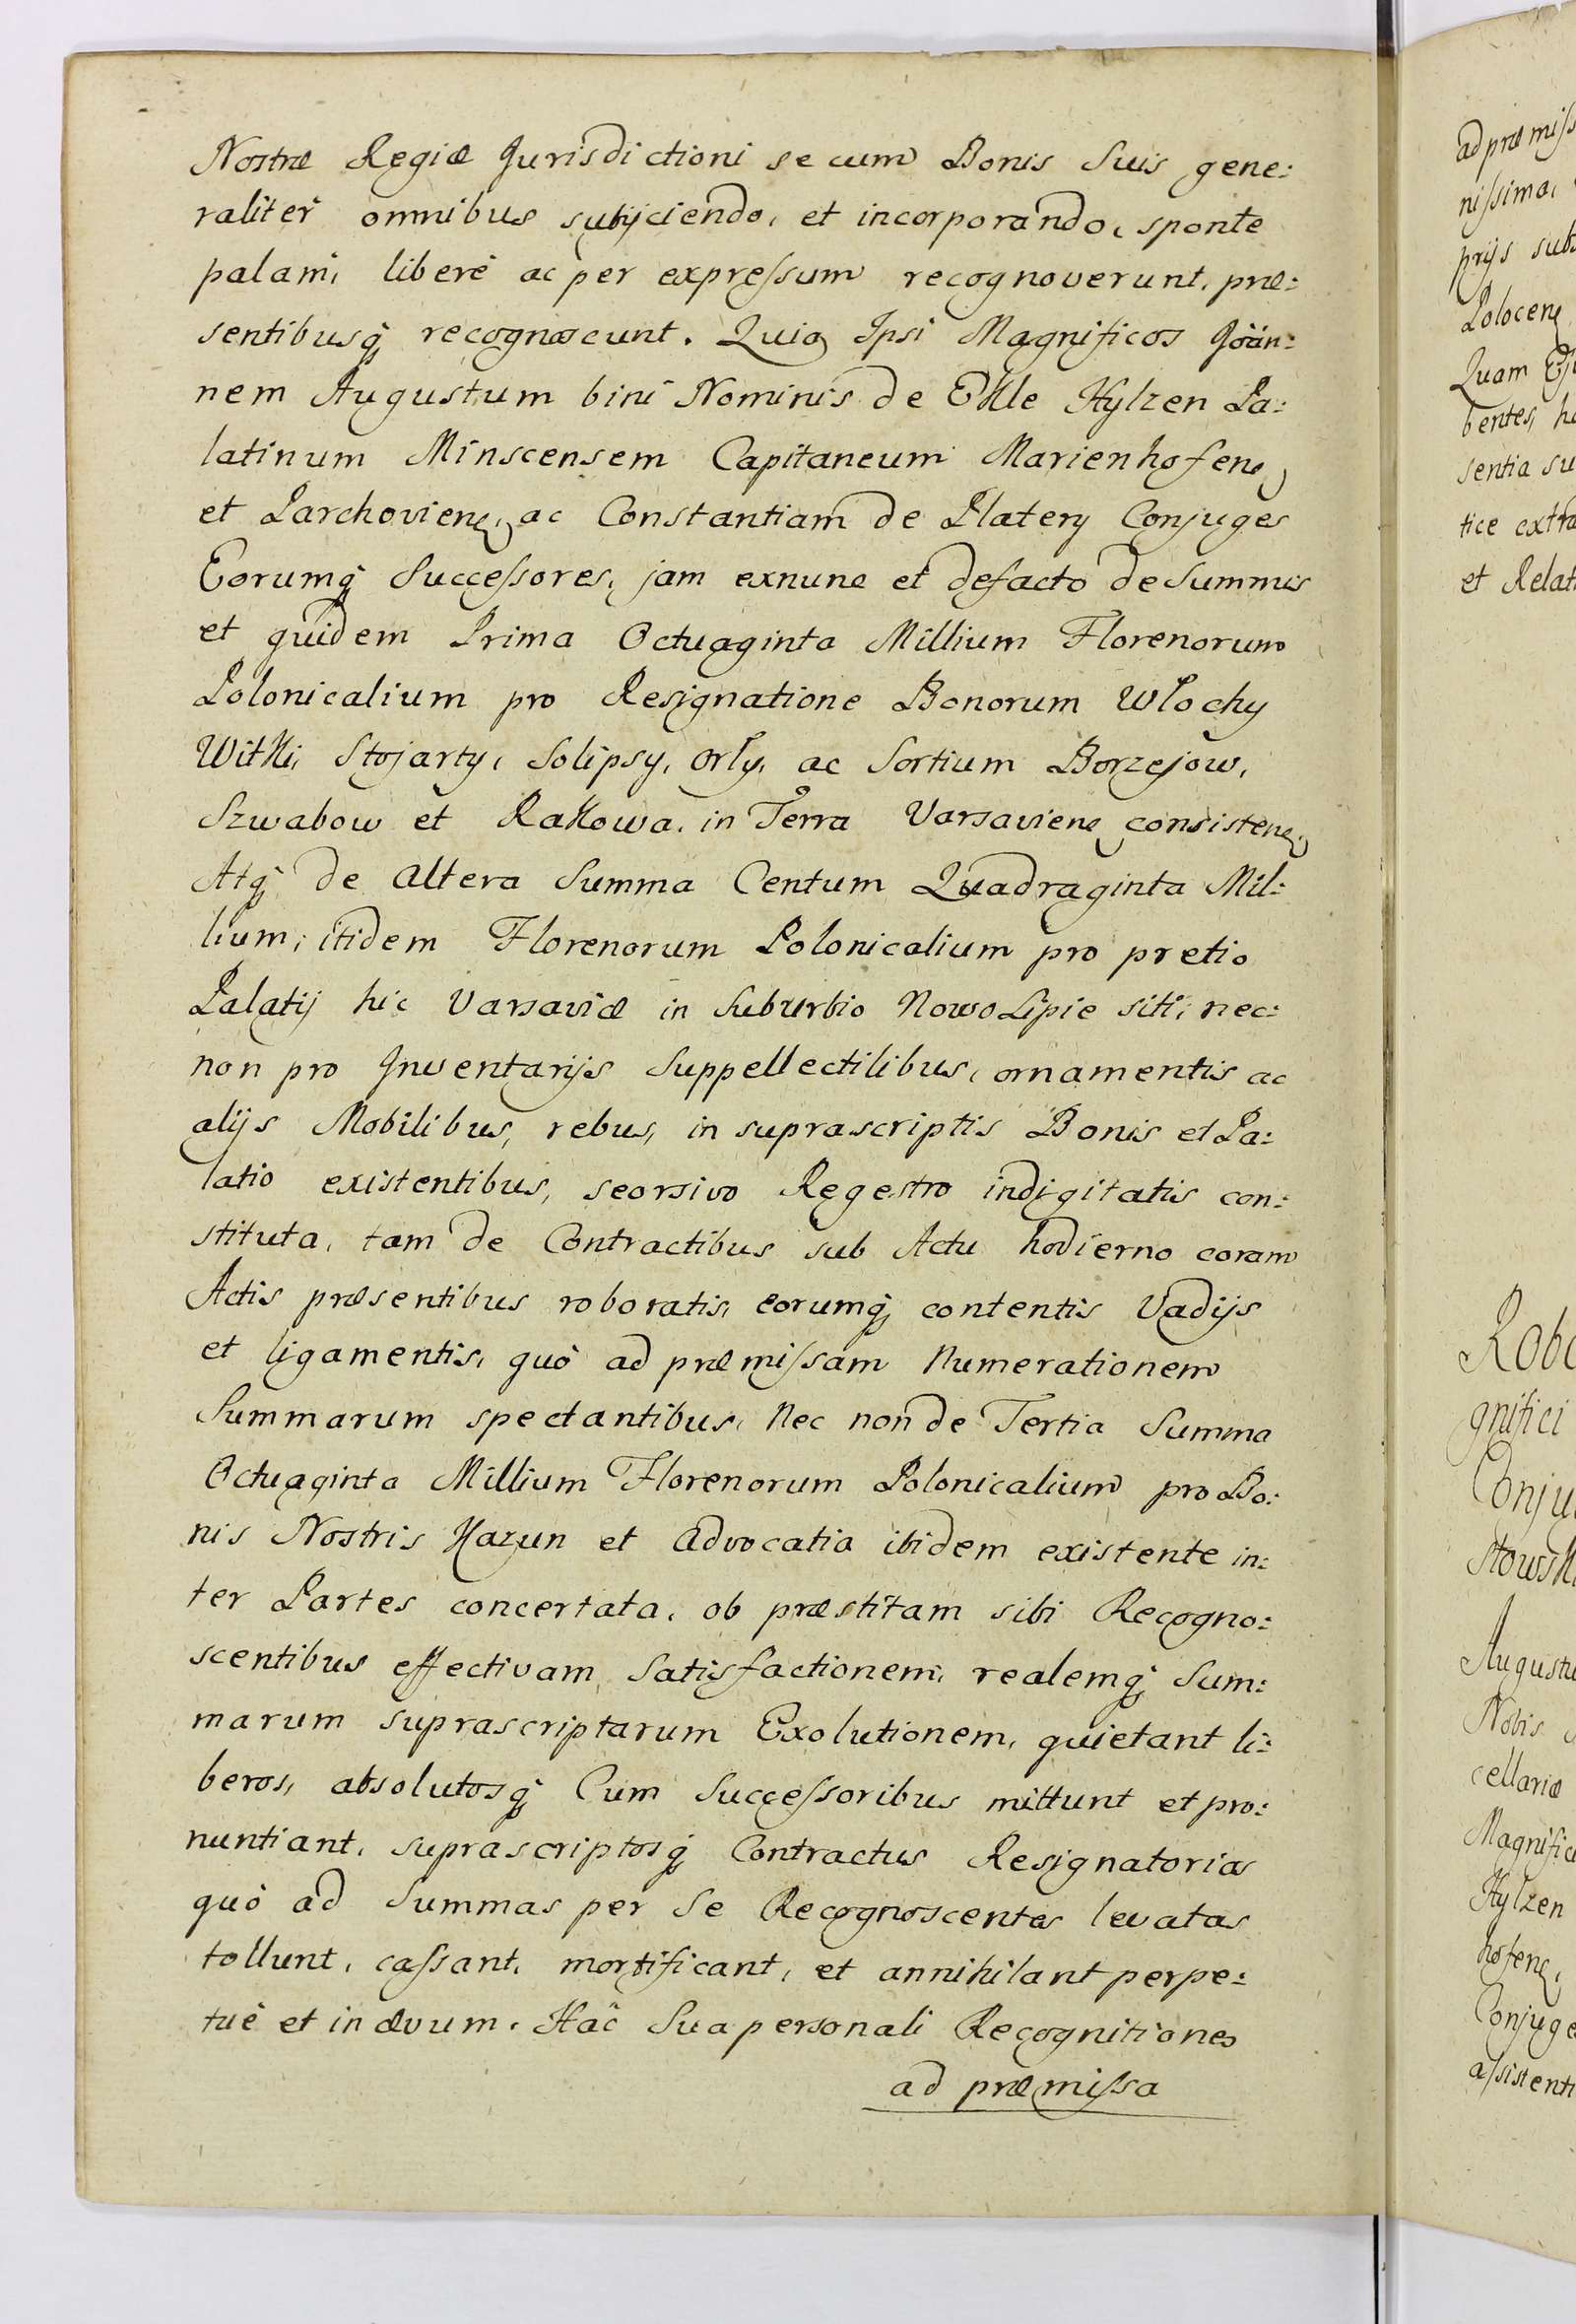 Nostræ Regiæ Jurisdictioni se cum Bonis Suis gene:
raliter omnibus subijciendo, et incorporando, sponte
palam, liberè ac per expreſsum recognoverunt, præ:
sentibusq̃ recognoscunt. Quia Ipsi Magnificos Joan:
nem Augustum bini Nominis de Ekle Hylzen Pa:
latinum Minscensem Capitaneum Marienhofen
et Parchovien, ac Constantiam de Platery Conjuges
Eorumq̃ Succeſsores, jam exnunc et defacto de Summis
et quidem Prima Octuaginta Millium Florenorum
Polonicalium pro Resignatione Bonorum Włochy
Witki, Stojarty, Solipsy, Orły, ac Sortium Borzejow,
Szwabow et Rakowa, in Terra Varsavien consisten,
Atq̃ de altera Summa Centum Quadraginta Mil:
lium, itidem Florenorum Polonicalium pro pretio
Palatij hic Varsaviæ in Suburbio Nowo Lipie siti, nec:
non pro Inventarijs Suppellectilibus, ornamentis ac
alijs Mobilibus, rebus, in suprascriptis Bonis et Pa:
latio existentibus, seorsivo Regestro indigitatis con:
stituta, tam de Contractibus sub Actu hodierno coram
Actis præsentibus roboratis, eorumq̃ contentis Vadijs
et ligamentis, quò ad præmiſsam Numerationem
Summarum spectantibus, Nec non de Tertia Summa
Octuaginta Millium Florenorum Polonicalium pro Bo:
nis Nostris Kazun et Advocatia ibidem existente in:
ter Partes concertata, ob præstitam sibi Recogno:
scentibus effectivam Satisfactionem, realemq̃ Sum:
marum suprascriptarum Exolutionem, quietant li:
beros, absolutosq̃ Cum Succeſsoribus mittunt et pro:
nuntiant, suprascriptosq̃ Contractus Resignatorios
quò ad Summas per Se Recognoscentes levatas
tollunt, caſsant, mortificant, et annihilant perpe:
tuè et in ævum. Hac Sua personali Recognitione
ad præmiſsa
ad præmiſs
niſsima,
prijs sub
Polocen
Quam
bentes, h
sentia su
tice extra
et Relat
Robo
gnifici
Conju
Augustu
Nobis
cellariæ
Magnific
Hylzen
hofen,
Conjuge
aſsistent